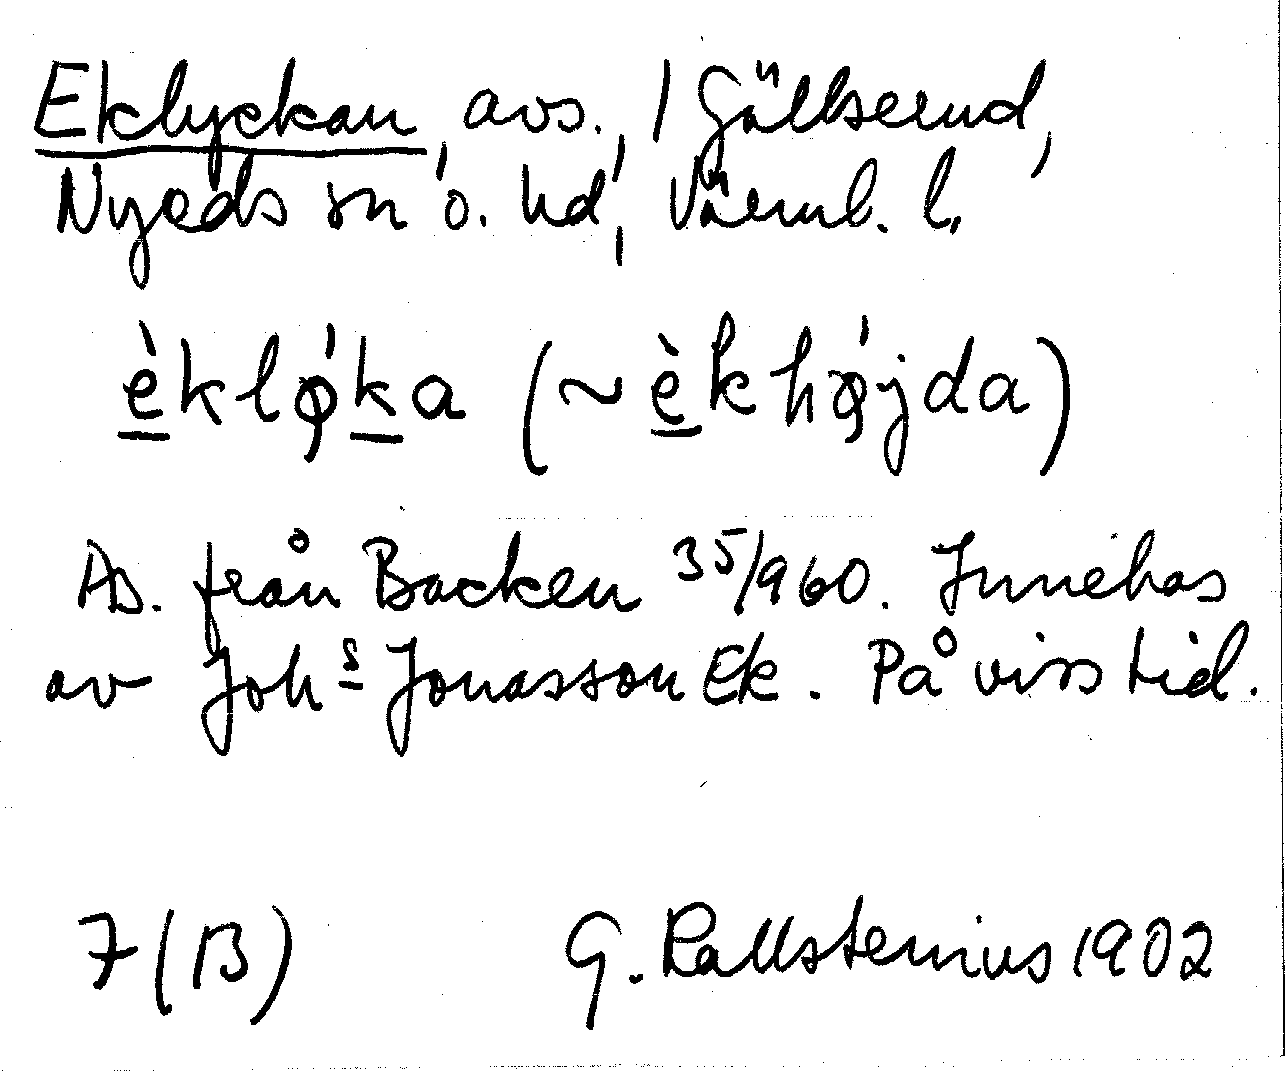 Eklyckan, avs., 1 Gällserud,
Nyeds sn o. hd, Värml. l.
è̠klǫ́ḵa (~ è̠khǫ́jda)
Avs. från Backen 35/960. Innehas
av Johs Jonasson Ek. På viss tid.
7 (B) G. Kallstenius 1902